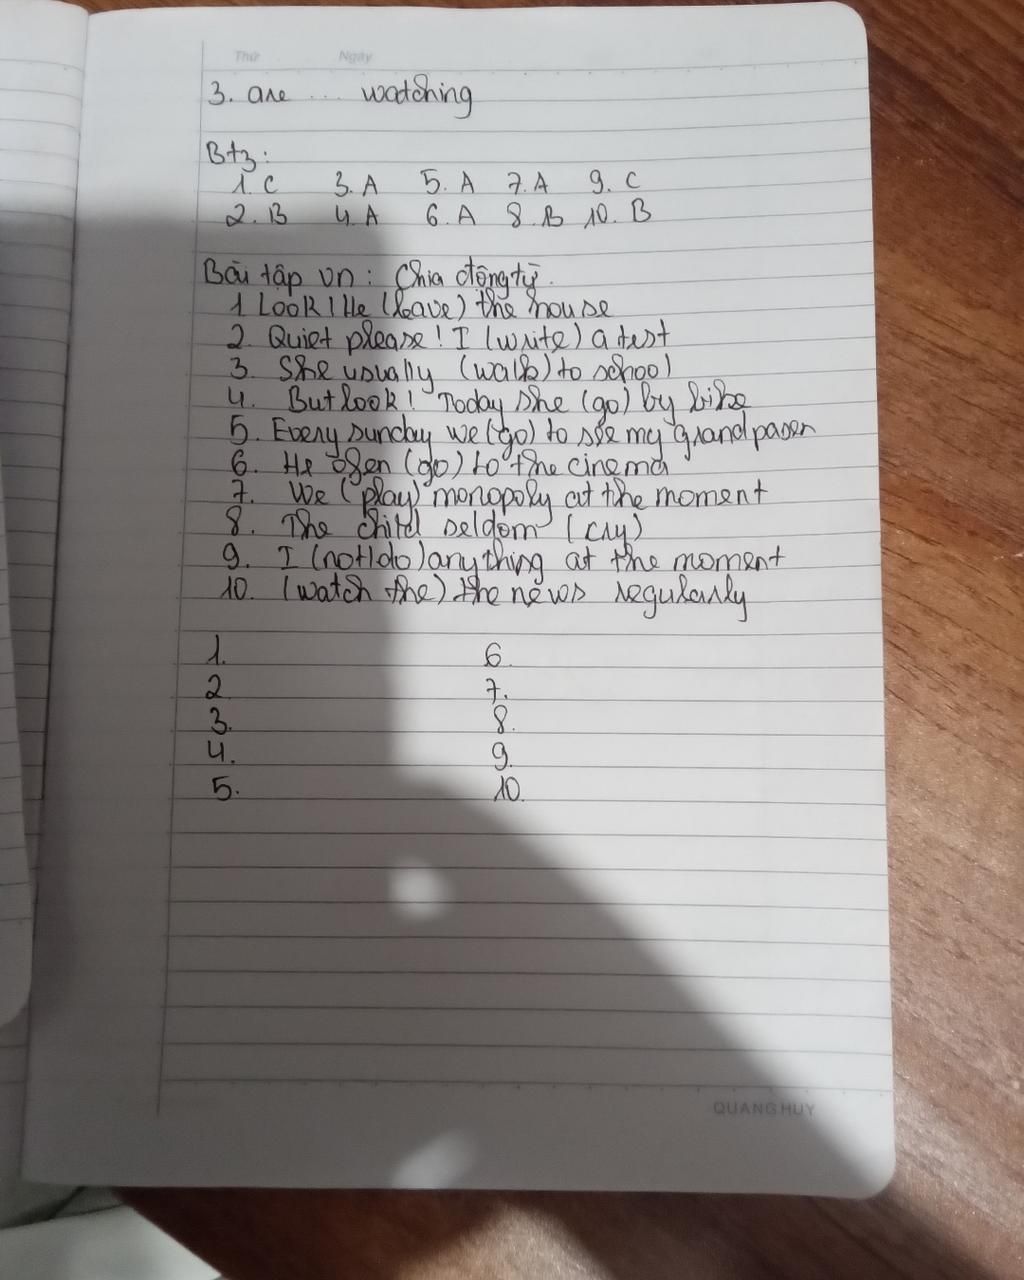 Thứ Ngày
3. are ... watching
Bt3:
1. C 3. A 5. A 7. A 9. C
2. B 4. A 6. A 8. B 10. B
Bài tập vn: Chia động từ.
1 Look! He (leave) the house
2 Quiet please! I (write) a test
3. She usually (walk) to school
4. But look! Today she (go) by bike
5. Every sunday we (go) to see my grandparen
6. He ofen (go) to the cinema
7. We (play) monopoly at the moment
8. The child seldom (cry)
9. I (not/do) anything at the moment
10. (watch the) the news regularly
1. 6.
2. 7.
3. 8.
4. 9.
5. 10.
QUANG HUY